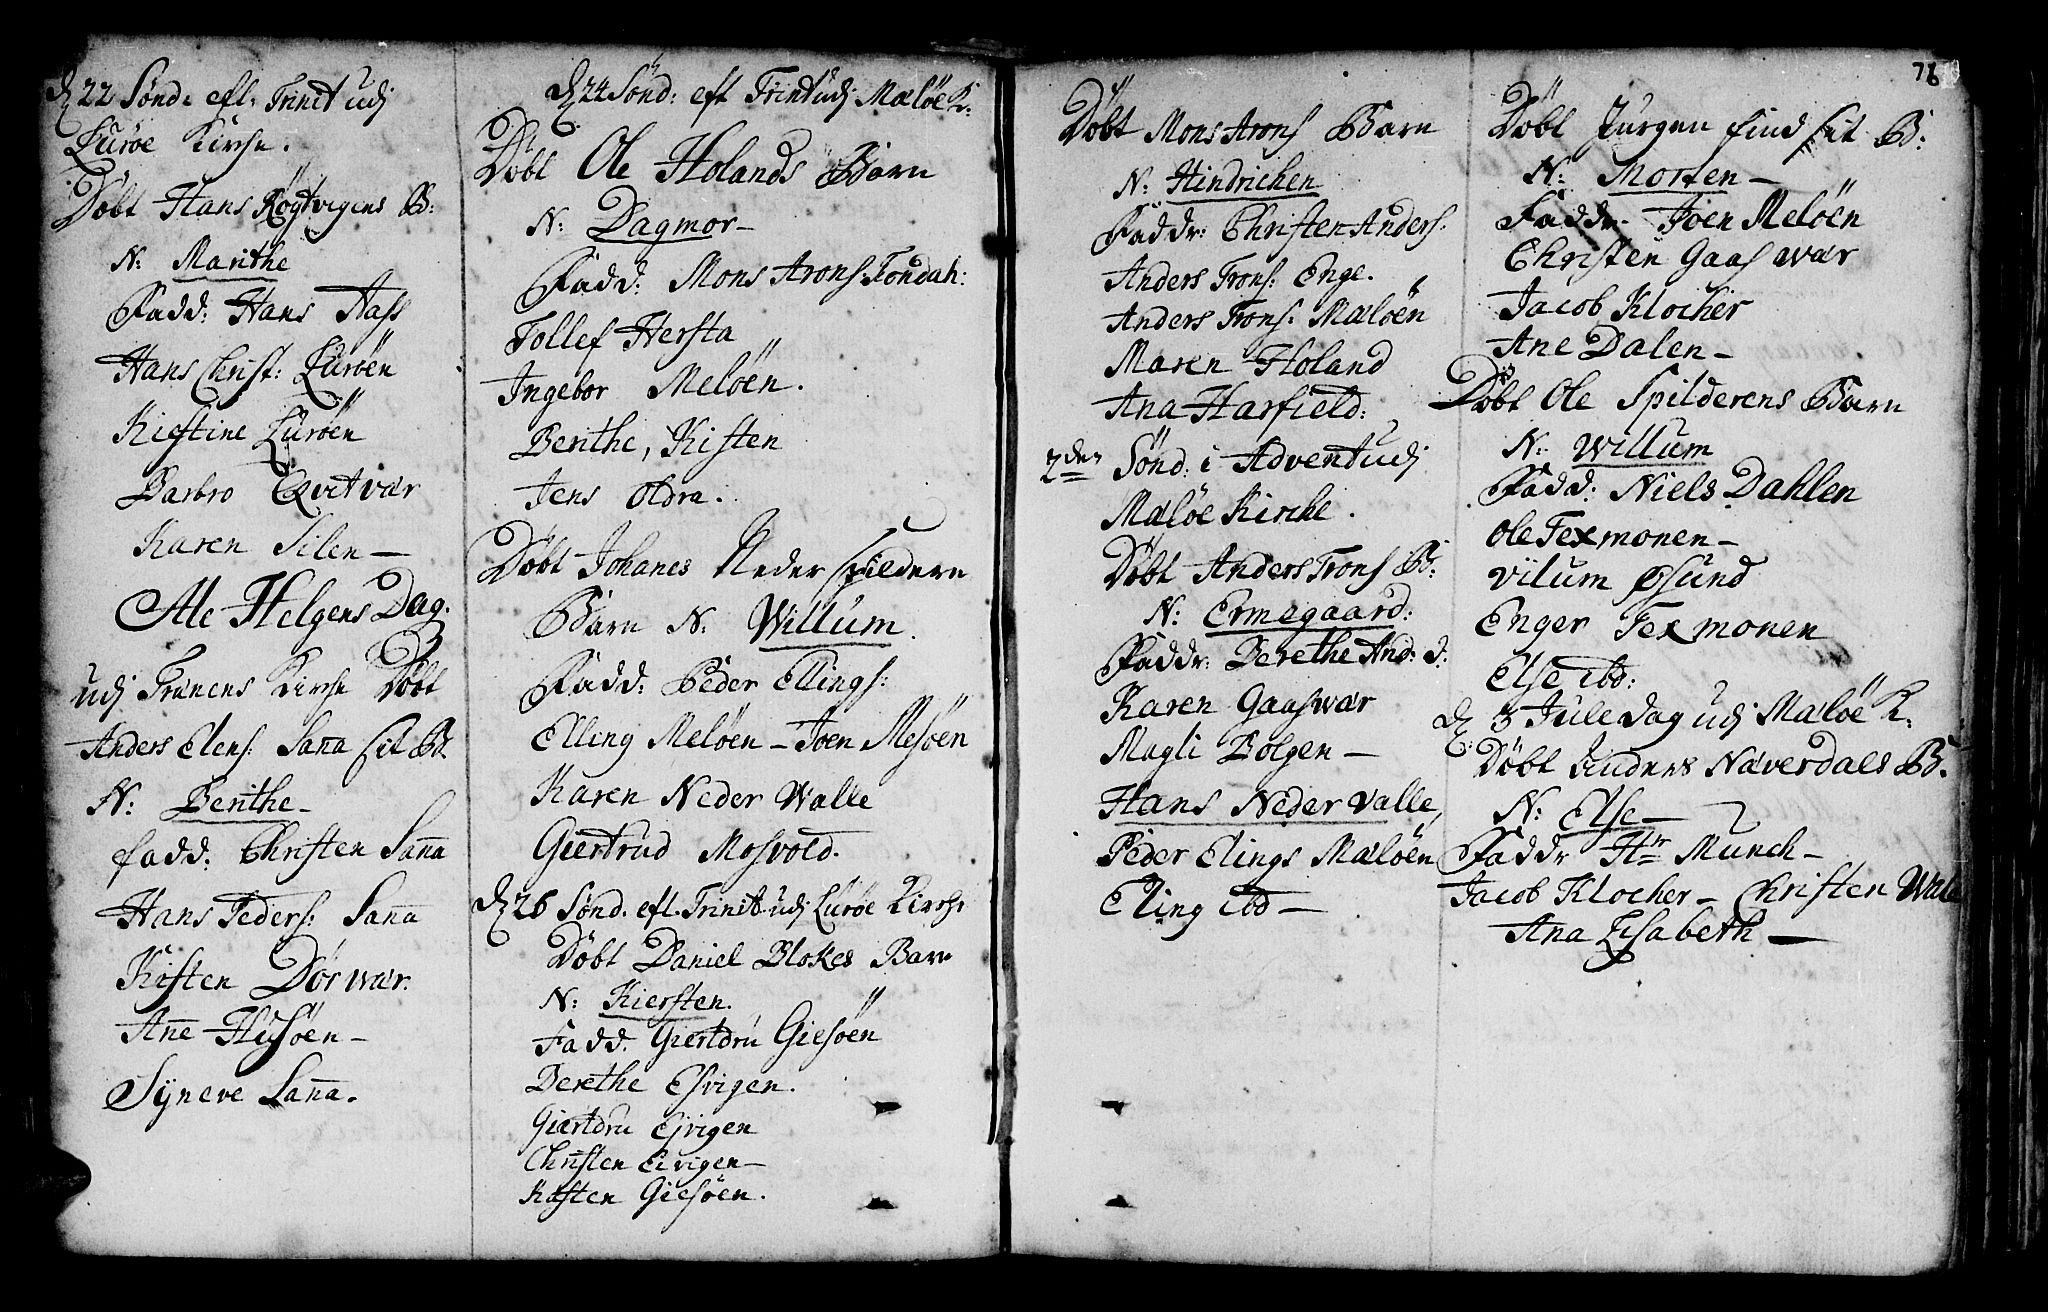 d 22 Sønd: eft: Trinit udj
Lurøe Kirche.
Døbt Hans Røgtvigens B:
N: Marithe
Fadd: Hans Aass
Hans Christ: Lurøen
Kiestine Lurøen
Barbro Qvitvær
Karen Silen —
Ale Helgens Dag.
udj Trænens Kirche Døbt
Anders Elens: Sanna sit B.
N: Berithe —
fadd: Christen Sanna
Hans Peders: Sanna
Kirsten Dørvær.
Anne Husøen —
Syneve Sanna.
d 24 Sønd: eft Trinit udj Meløe K:
Døbt Ole Holands Barn
N: Dagmor —
Fadd: Mons Arons: Fondah:
Tollef Hersta
Ingebor Meløen.
Berithe, Kisten
Jens Oldra.
Døbt Johanes Neder Spildern
Barn N: Willum.
Fadd: Peder Ellings:
Elling Meløen — Joen Mesøen
Karen Neder Walle
Giertrud Mosvold.
d 26 Sønd. eft. Trinit udj Lurøe Kirche
Døbt Daniel Blokes Barn
N: Kiersten.
Fadd. Giertdru Giesøen
Berethe Esvigen.
Giærtdru Esvigen
Christen Eivigen —
Kisten Giesøen.
78
Døbt Mons Arons Barn
N: Hindrichen
Faddr: Christen Anders:
Anders Trons: Enge.
Anders Trons: Meløen
Maren Holand
Ana Harfield:
2den Sønd: i Advent udj
Meløe Kirche.
Døbt Anders Trons B:
N: Ermegaard:
Faddr: Berethe And: d:
Karen Gaaswær
Magli Bolgen —
Hans Neder valle,
Peder Elings Meløen
Eling ibd —
Døbt Jurgen find sit B:
N: Morten —
Faddr. Joen Meløen
Christen Gaaswær
Jacob Klocher
Ane Dalen —
Døbt Ole Spilderens Barn
N: Willum
Fadd: Niels Dahlen
Ole Texmonen —
Vilum Øsund
Enger Texmonen
Else ibd:
d 3 Jule Dag udj Meløe K:
Døbt Anders Næverdals B.
N: Else —
Faddr Hr Munch —
Jacob Klocher — Christen Wale
Ana Lisabeth —